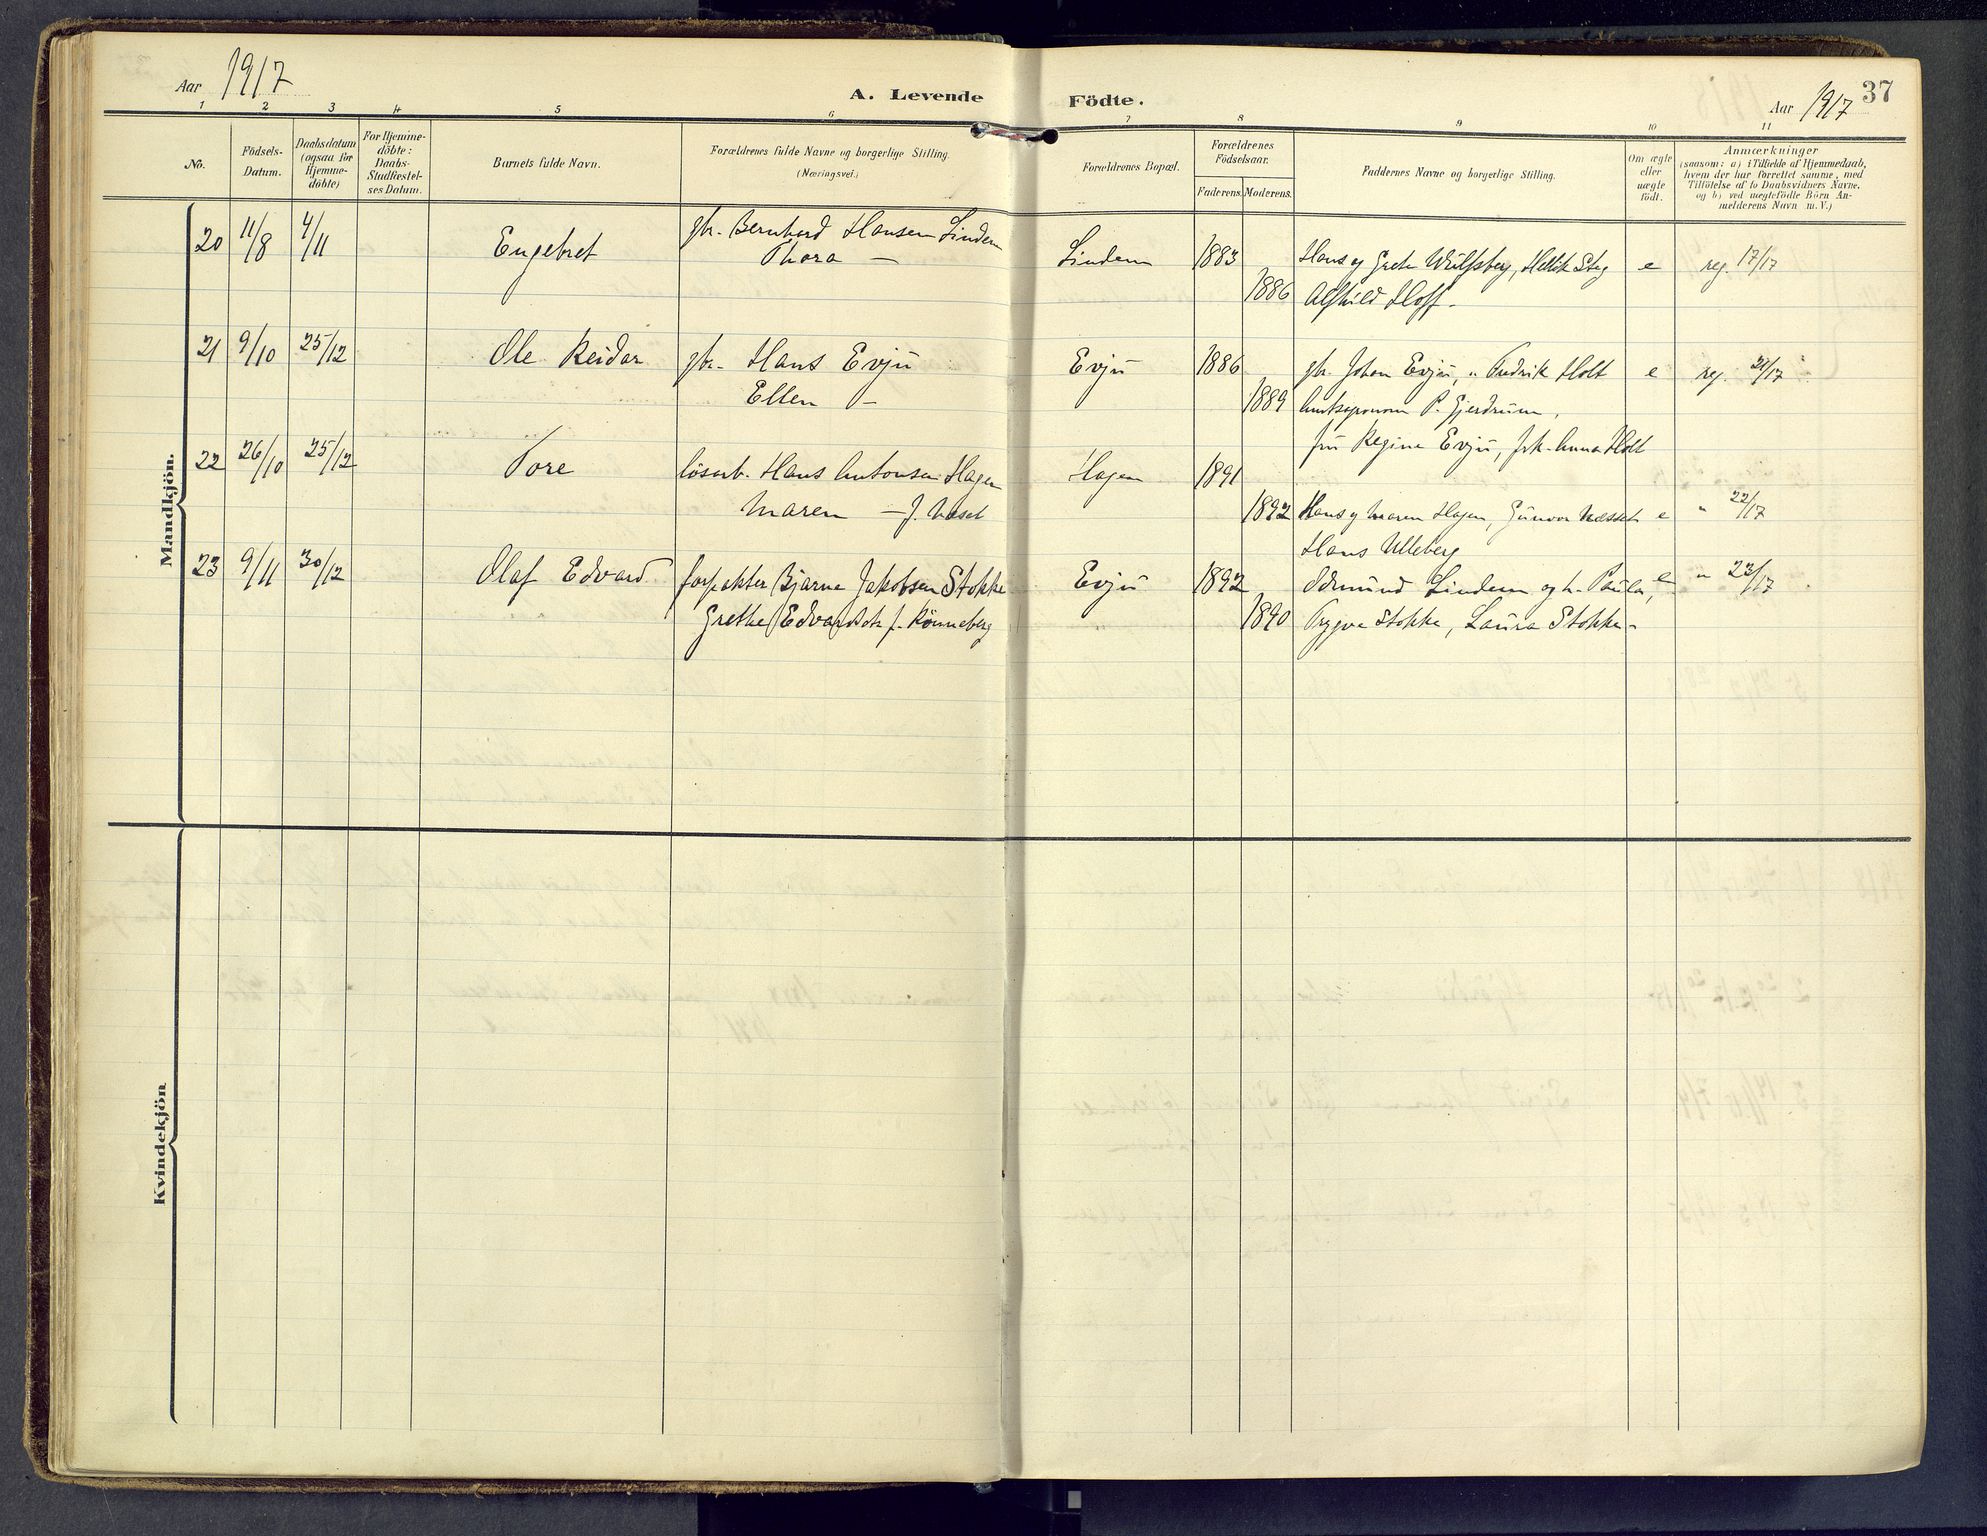 Aar 1917
A. Levende Födte.
Aar 1917
37
1 2 3 4 5 6 7 8 9 10 11
No.
Födsels-
Datum.
Daabsdatum
(ogsaa for
Hjemme-
döbte)
For Hjemme-
döbte:
Daabs-
Stadfæstel-
ses Datum.
Barnets fulde Navn.
Forældrenes fulde Navne og borgerlige Stilling.
(Næringsvei.)
Forældrenes Bopæl.
Forældrenes
Födselsaar.
Faderens. Moderens.
Faddernes Navne og borgerlige Stilling.
Om ægte
eller
uægte
født.
Anmærkninger
(saasom: a) i Tilfælde af Hjemmedaab,
hvem der har forrettet samme, med
Tilföielse af to Daabsvidners Navne.
og b) ved uægtefödte Börn An-
melderens Navn m. V.)
Mandkjön.
20 11/8 4/11 Engebret gbr. Bernhard Hansen Lindem Lindem 1883 Hans og Grete Wulfsberg, Hellik e reg. 17/17
Thora — 1886 Alfhild Hoff.
21 9/10 25/12 Ole Reidar gbr. Hans Evju Evju 1886 gbr. Johan Evju, " Fredrik Holt e reg. 21/17
Ellen — 1889 Amtsagronom P. Gjerdrum,
fru Regine Evju, frk. Anna Holt
22 26/10 25/12 Tore løsarb. Hans Antonsen Hagen Hagen 1891
Maren — f. Næset 1892 Hans og Maren Hagen, Gunvor Næsset e " 22/17
Hans Ulleberg
23 9/11 30/12 Olaf Edvard forpakter Bjarne Jakobsen Stokke Evju 1892 Odmund Lindem og h. Paula, e " 23/17
Grethe f. Rönneberg 1890 Trygve Stokke, Laura Stokke.
Kvindekjön